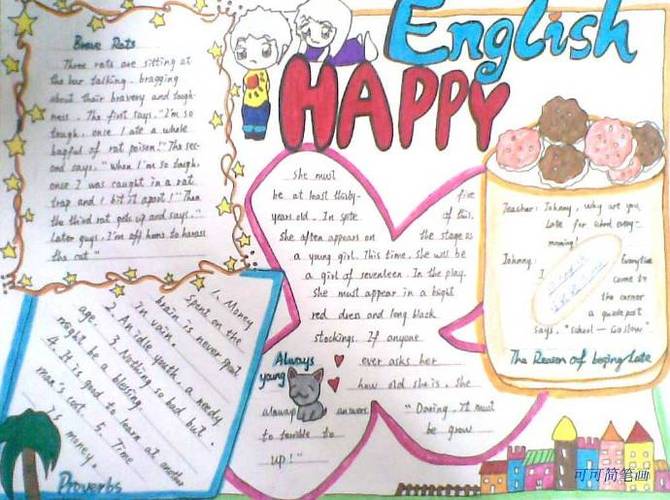 English
HAPPY
Brave Rats
Three rats are sitting at
the bar talking. bragging
about their bravery and tough-
ness. The first says, "I'm so
tough, once I ate a whole
bagful of rat poison!" The sec-
ond says, "When I'm so tough,
once I was caught in a rat
trap and I bit it apart!" Then
the third rat gets up and says,"
Later guys, I'm off home to harass
the cat"
1. Money
spent on the
brain is never spent
in vain.
2. An idle youth, a needy
age.
3. Nothing so bad but
might be a blessing.
4. It is good to learn at another
man's cost. 5. Time
Is money.
Proverbs
She must
be at least thirty-
five
years old. In spite
of this,
She often appears on
the stage as
a young girl. This time, she will be
a girl of seventeen. In the play,
She must appear in a bright
red dress and long black
stockings. If anyone
ever asks her
how old she is, she
always answers
"Darling, it must
be grow
to terrible to
up!"
Always
young
Teacher: Johnny, why are you
late for school every-
morning?
Johnny: Everytime
I come to
the corner
a guidepost
says, "School — Go slow"
The Reason of being late
可可简笔画